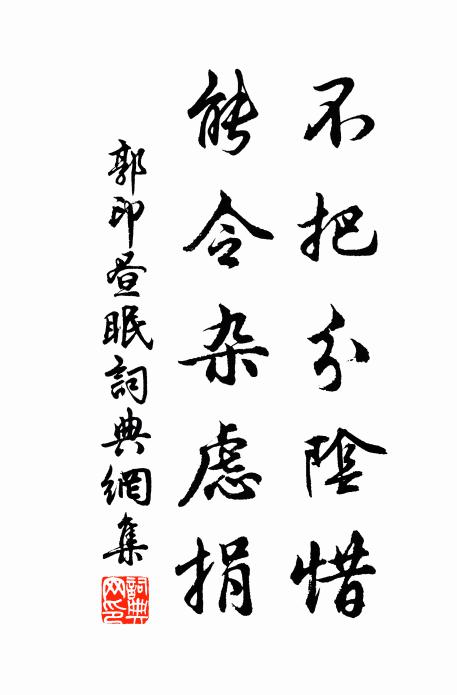 不把分陰惜
能令杂慮捐
郭印昼眠詞典網集
詞典網印